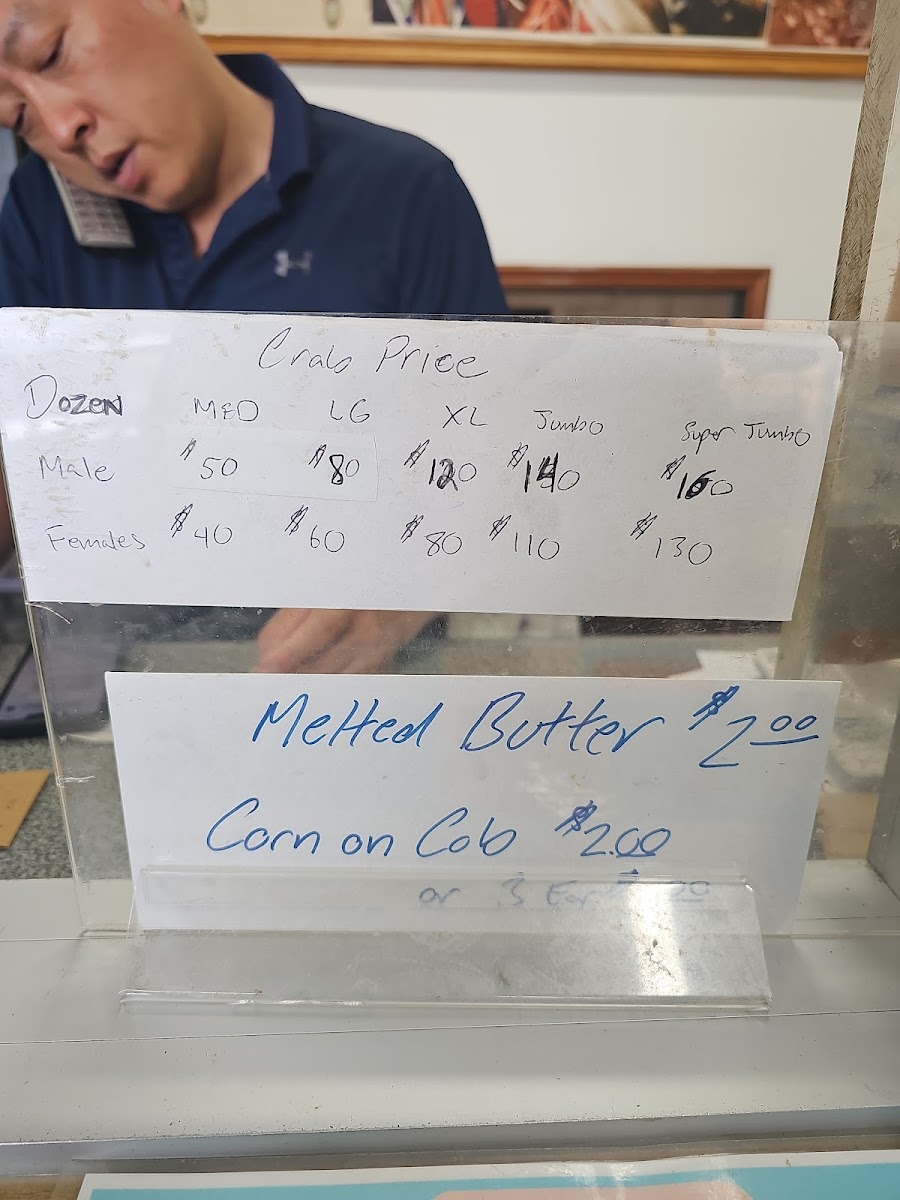 Crab Price
Dozen MED LG XL Jumbo Super Jumbo
Male $50 $80 $120 $140 $160
Females $40 $60 $80 $110 $130
Melted Butter $2.00
Corn on Cob $2.00
or 3 For